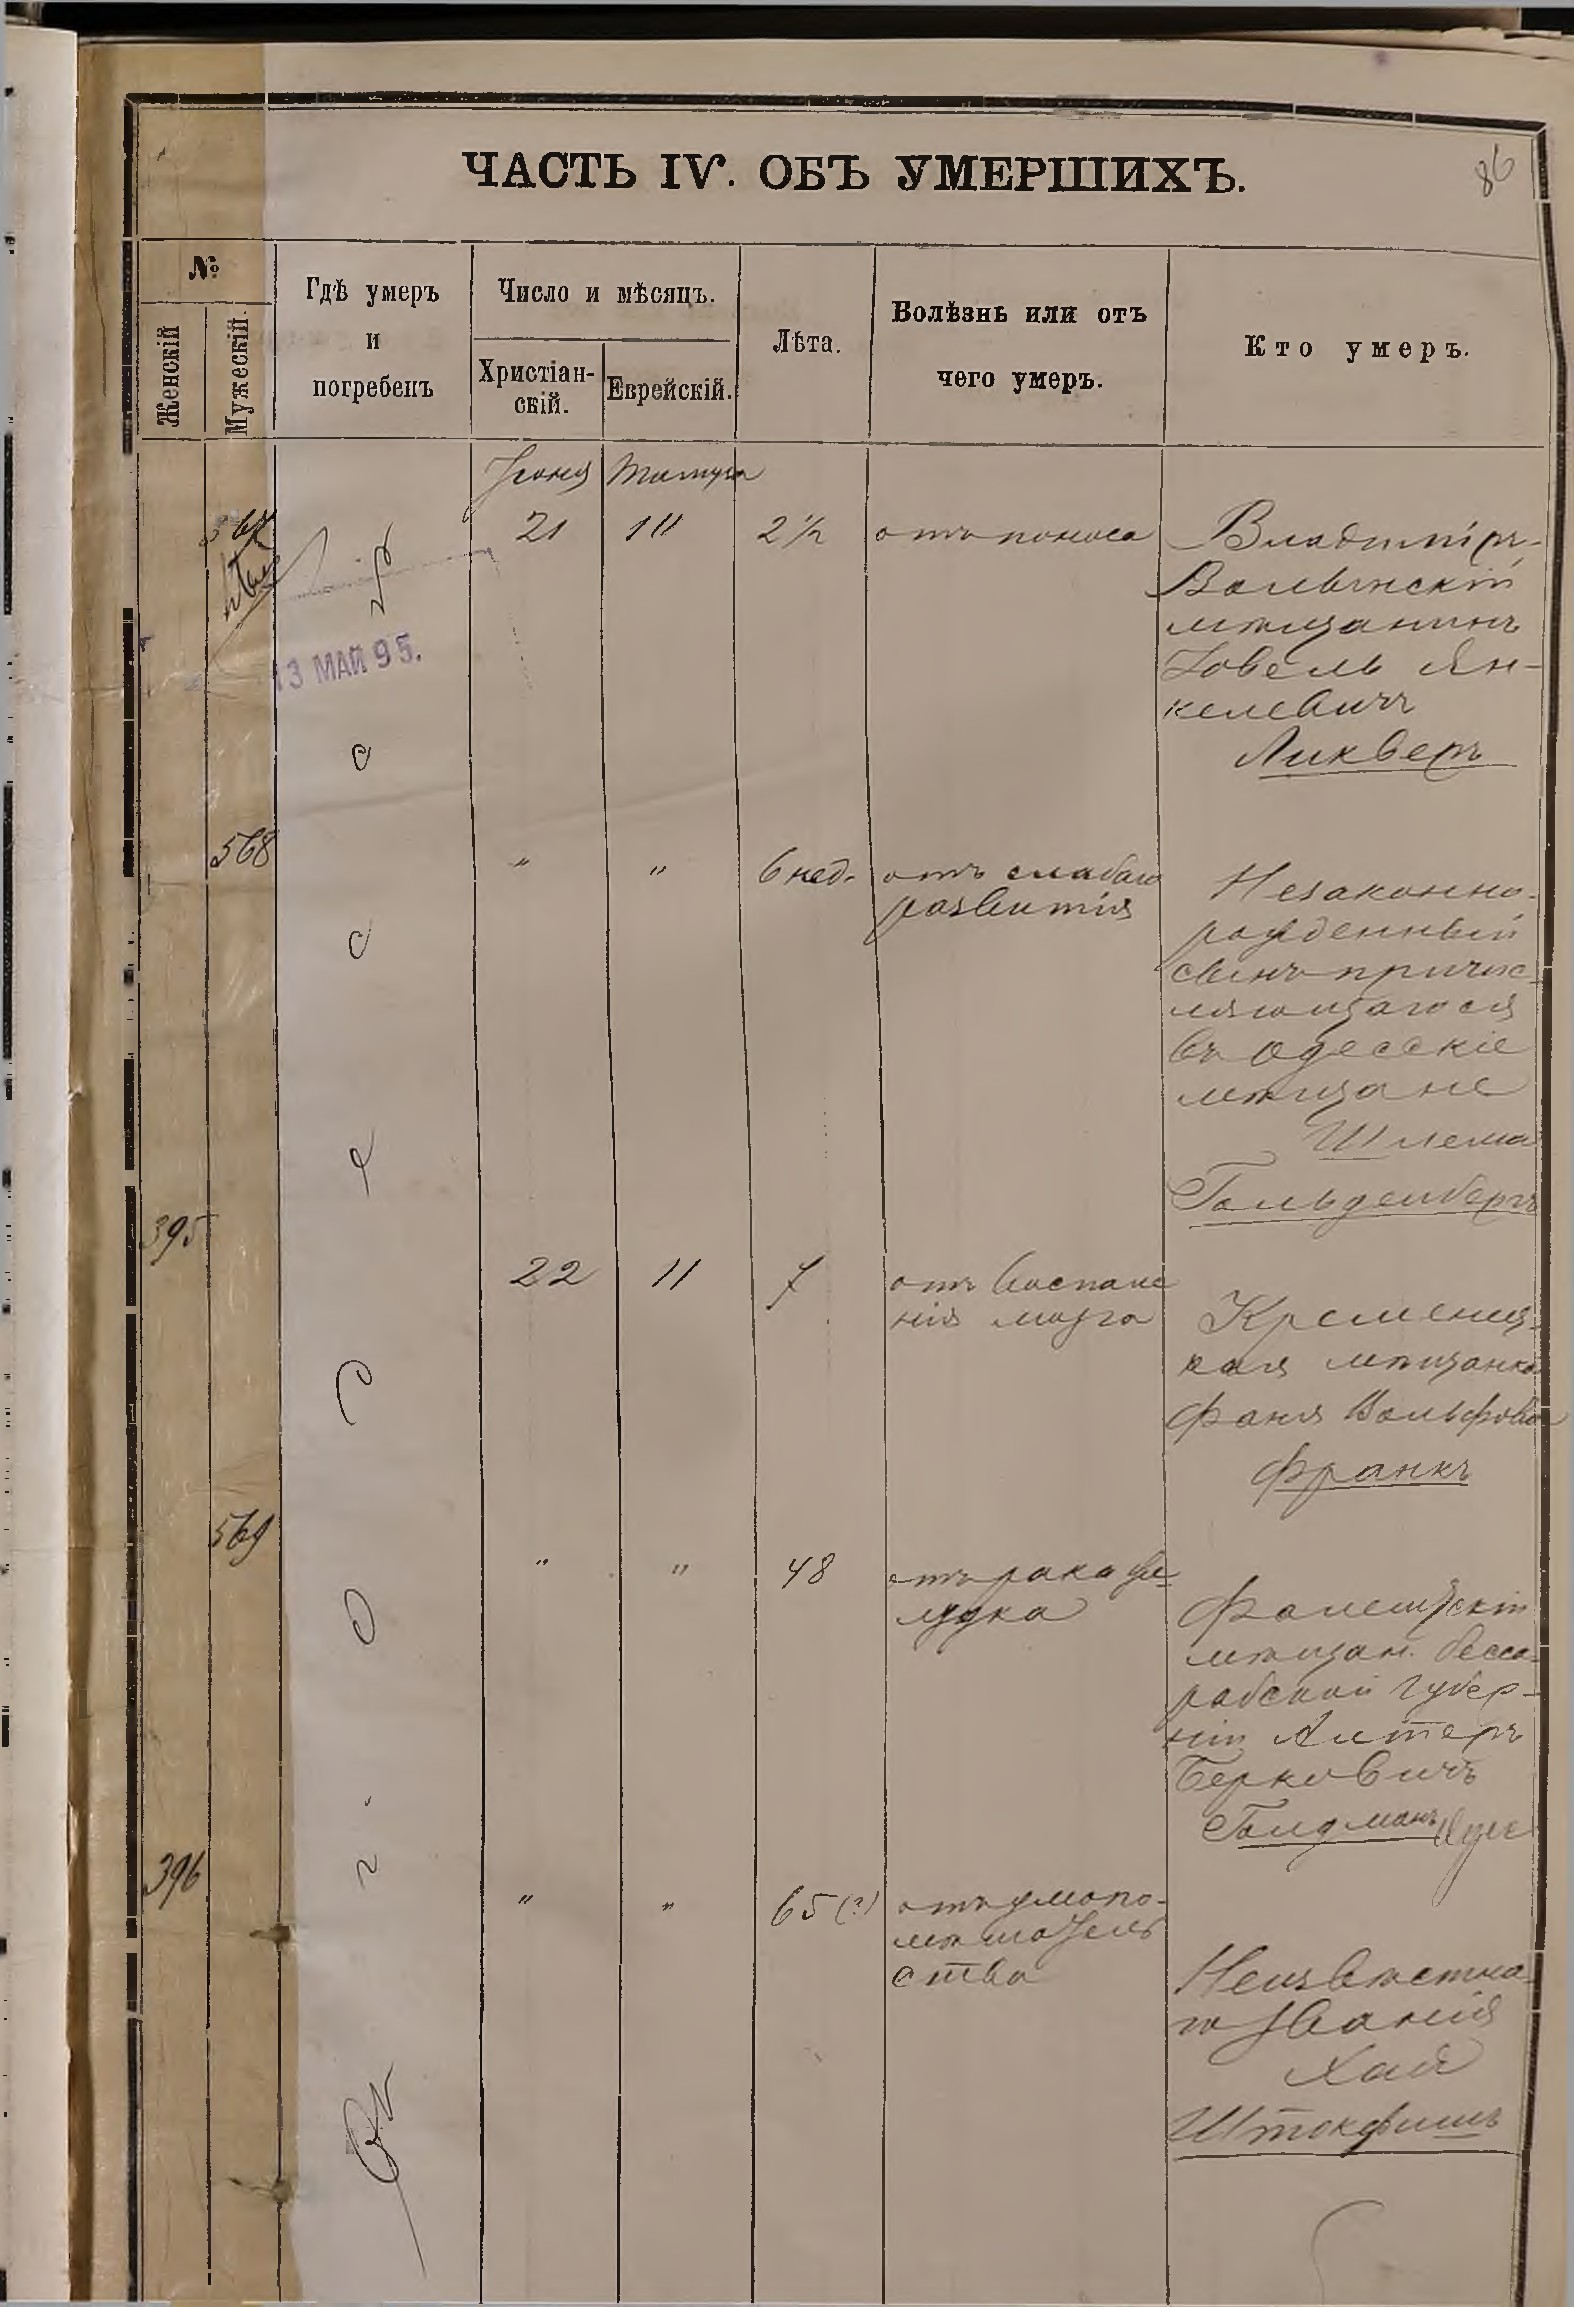 86
ЧАСТЬ IV. ОБЪ УМЕРШИХЪ.
№
Женскій
Мужескій.
Гдѣ умеръ
и
погребенъ
Число и мѣсяцъ.
Христіан-
скій.
Еврейскій.
Лѣта.
Болѣзнь или отъ
чего умеръ.
Кто умеръ.
Іюня Тамуза
567 21 11 2½ отъ поноса Владимиръ-
Волынскій
мѣщанинъ
Іовель Ян-
келевичъ
Ликверъ
13 МАЙ 95.
568 " " 6 нед. отъ слабаго
развитія
Незаконно-
рожденный
сынъ причис-
ляющагося
въ одесскіе
мѣщане
Шлема
Гольденбергъ
395 22 11 7 отъ воспале
нія мозга
Кременец-
кая мѣщанка
Фаня Вольфова
Франкъ
569 " " 48 отъ рака же-
лудка
Фалештскій
мѣщан. бесса-
рабской губер-
ніи Алтеръ
Берковичъ
Голдманъ
396 " " 65 (?) отъ умопо-
мѣшатель
ства
Неизвѣстна-
го званія
Хая
Штокфишъ